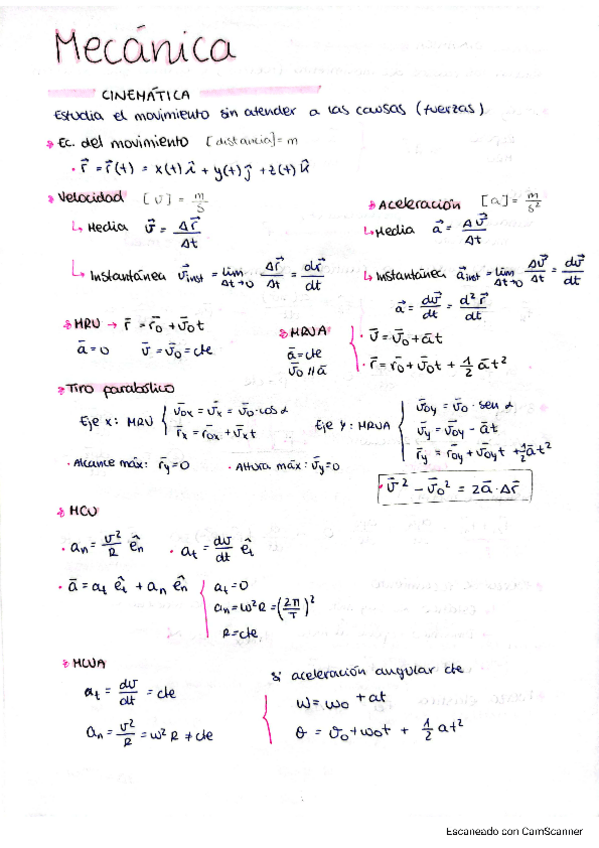 Mecánica
CINEMÁTICA
Estudia el movimiento sin atender a las causas (fuerzas)
Ec. del movimiento [distancia]=m
· r⃗ = r⃗(t) = x(t)î + y(t)ĵ + z(t)k̂
Velocidad [v] = m/s
↳ Media v⃗ = Δr⃗/Δt
↳ Instantánea v⃗inst = lim Δt→0 Δr⃗/Δt = dr⃗/dt
Aceleración [a] = m/s²
↳ Media a⃗ = Δv⃗/Δt
↳ Instantánea a⃗inst = lim Δt→0 Δv⃗/Δt = dv⃗/dt
a⃗ = dv⃗/dt = d²r⃗/dt
MRU → r̄ = r̄₀ + v̄₀t
ā=0 v̄ = v̄₀ = cte
MRUA
ā = cte
v̄₀ // ā
· v̄ = v̄₀ + āt
· r̄ = r̄₀ + v̄₀t + 1/2 āt²
Tiro parabólico
Eje x: MRU
v̄₀x = v̄x = v̄₀·cos α
r̄x = r̄₀x + v̄x t
Eje y: MRUA
v̄₀y = v̄₀ · sen α
v̄y = v̄₀y - āt
r̄y = r̄₀y + v̄₀y t + 1/2 āt²
· Alcance máx: r̄y = 0 · Altura máx: v̄y = 0
· v̄² - v̄₀² = 2ā · Δr̄
MCU
· an = v²/R ên · at = dv/dt êt
· ā = at êt + an ên
at = 0
an = ω²R = (2π/T)²
R = cte
MCUA
at = dv/dt = cte
an = v²/R = ω²R ≠ cte
Si aceleración angular cte
ω = ω₀ + αt
θ = θ₀ + ω₀t + 1/2 αt²
Escaneado con CamScanner